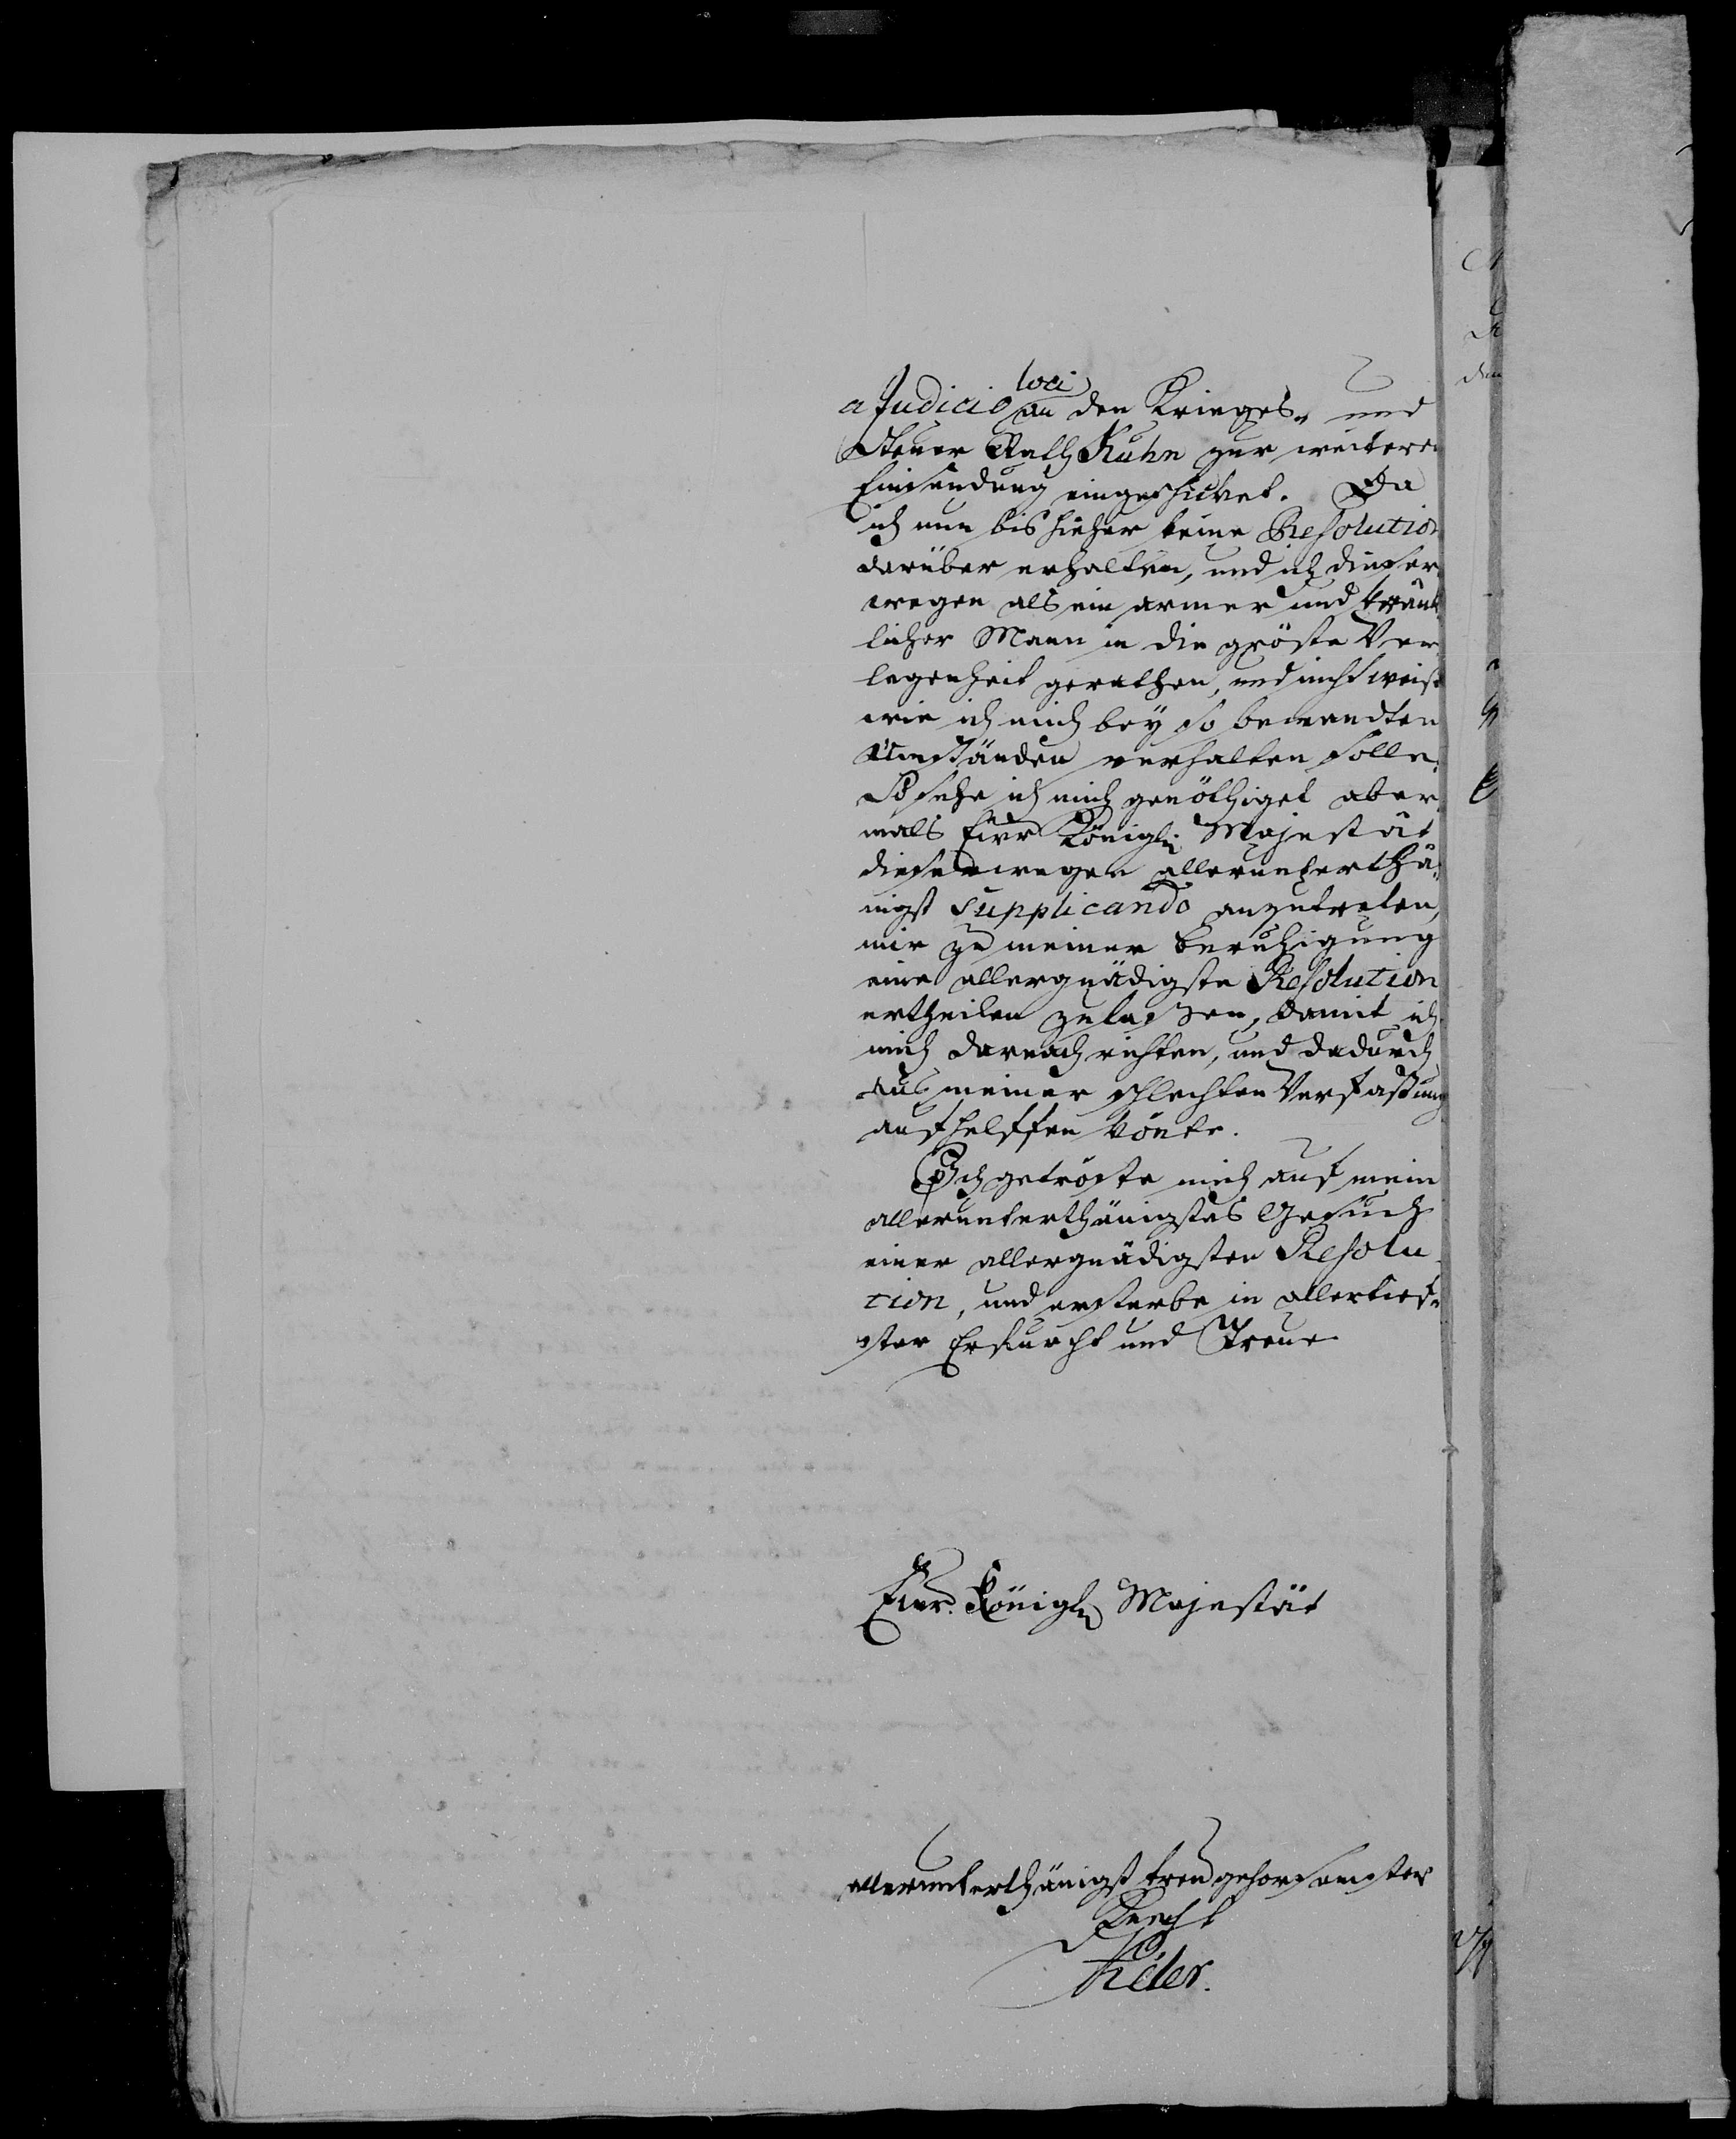 a Judicio loci an den Krieges- und
Steuer Rath Kuhn zur weitern
Einsendung eingeschicket. Da
ich nun bis hieher keine Resolution
darüber erhalten, und ich dieser
wegen als ein armer und kränk
licher Mann in die gröste Ver
legenheit gerathen, und nicht weiß
wie ich mich bey so bewandten
Umständen verhalten solle.
So sehe ich mich genöthiget aber
mals Ewr Königl. Majestät
dieserwegen allerunterthä-
nigst supplicando anzutreten,
mir zu meiner beruhigung
eine allergnädigste Resolution
ertheilen zu laßen, damit ich
mich darnach richten, und dadurch
aus meiner schlechten Verfaßung
aufhelffen könte.
Ich getröste mich auf mein
allerunterthänigstes Gesuch
einer allergnädigsten Resolu
tion, und ersterbe in allertief-
ster Erfurcht und Treue
Ewr. Königl. Majestät
allerunterthänigst treu gehorsamster
Knecht